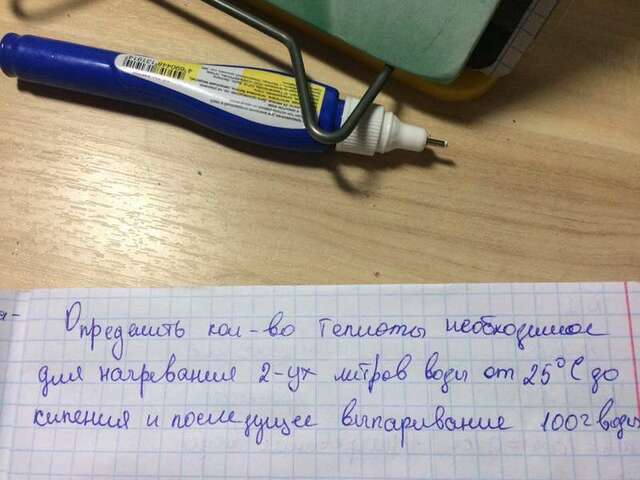 Определить кол-во теплоты необходимое
для нагревания 2-ух литров воды от 25°С до
кипения и последущее выпаривание 100г воды